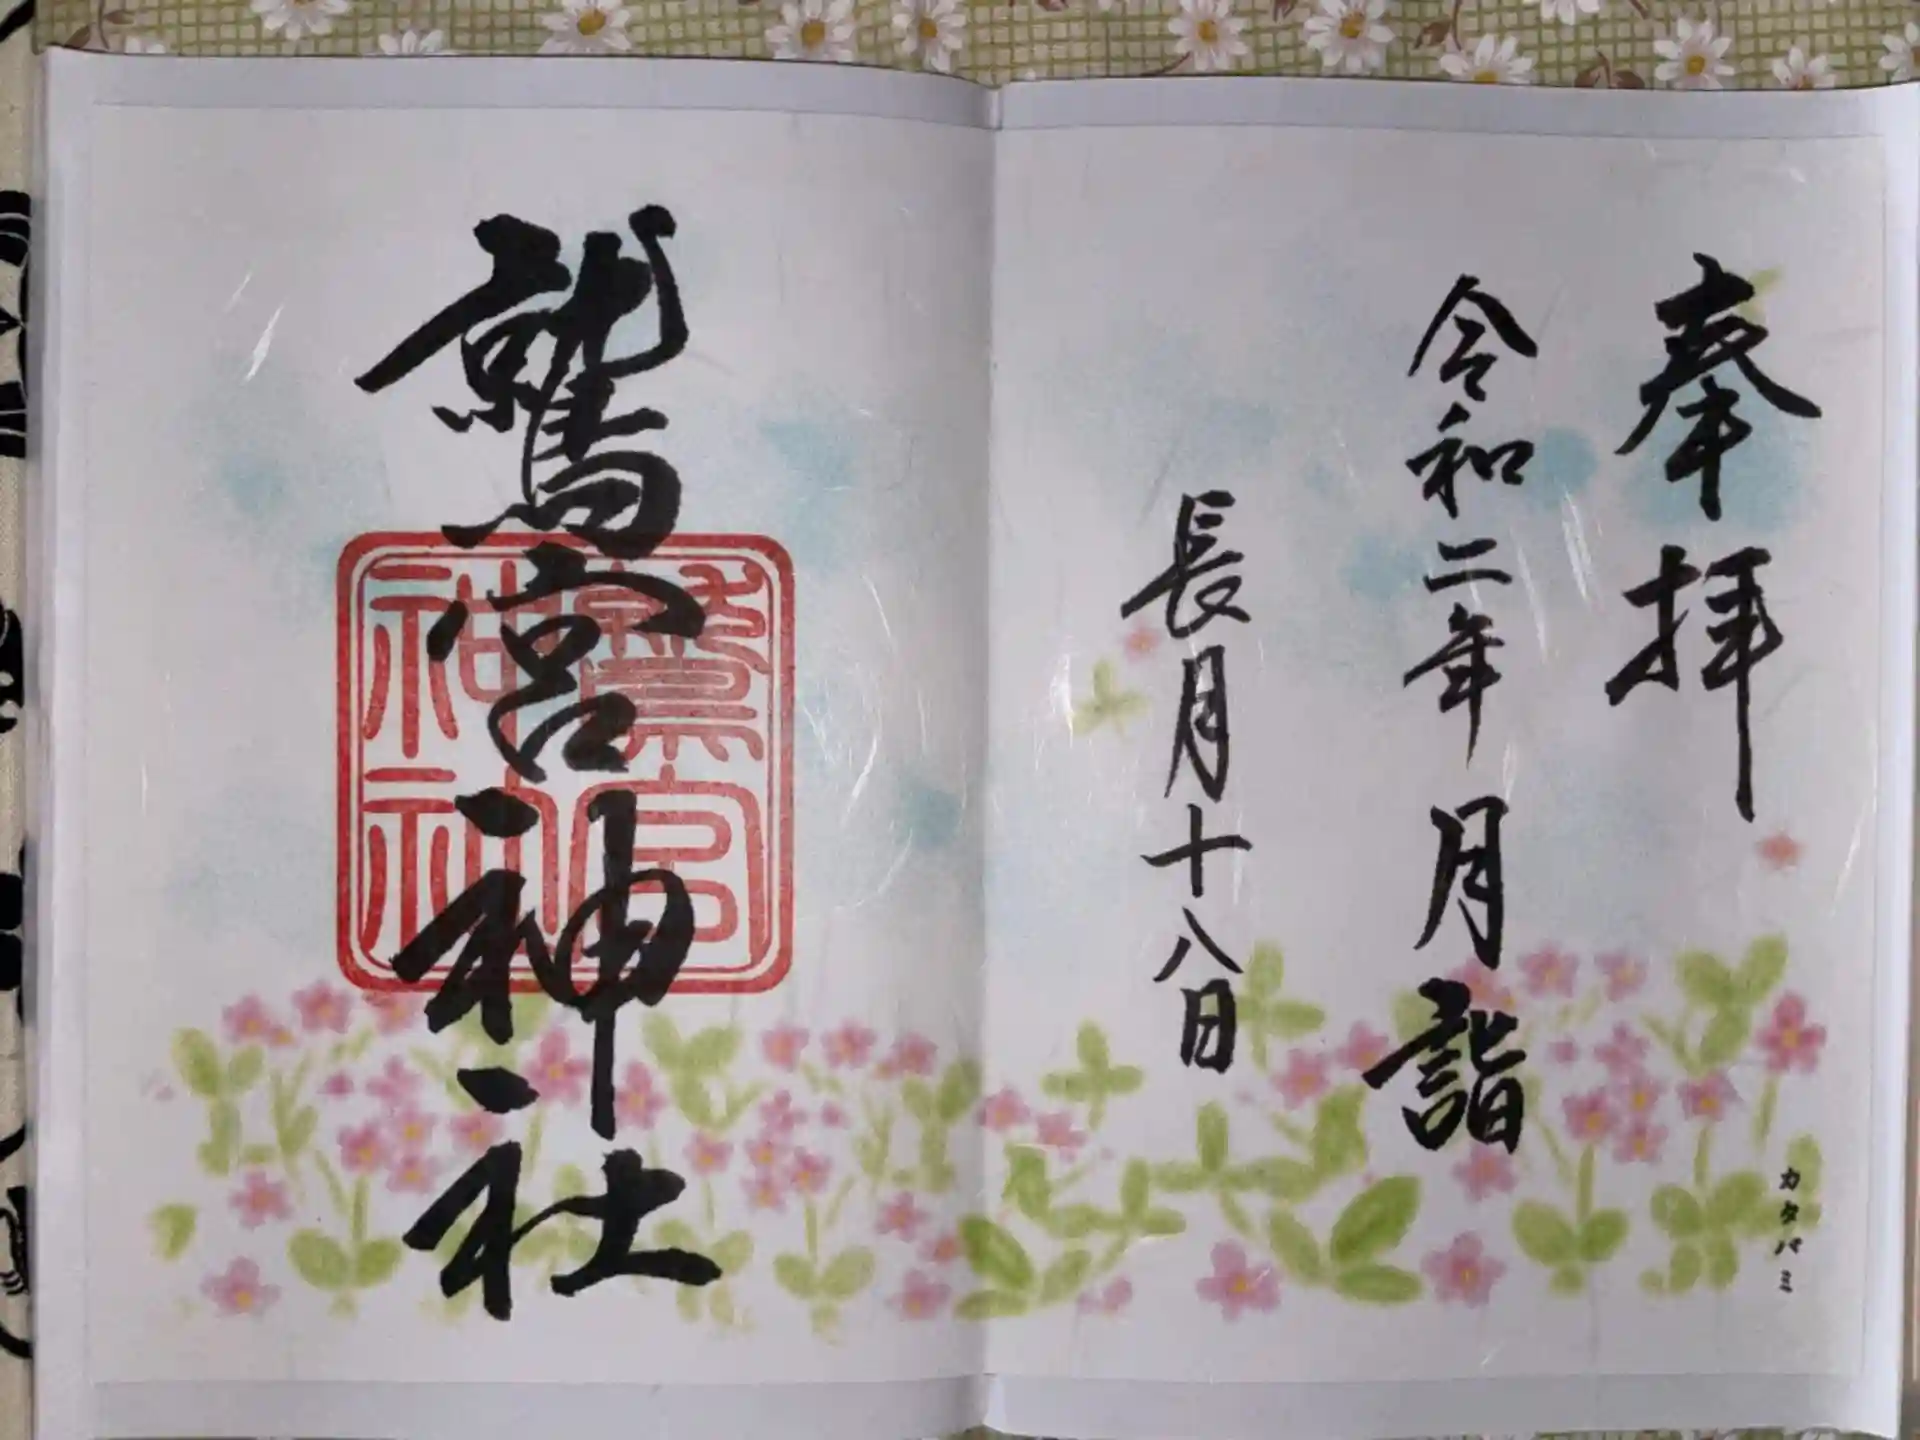 奉拝
令和二年月詣
長月十八日
カタバミ
鷲宮神社
鷲宮
神社